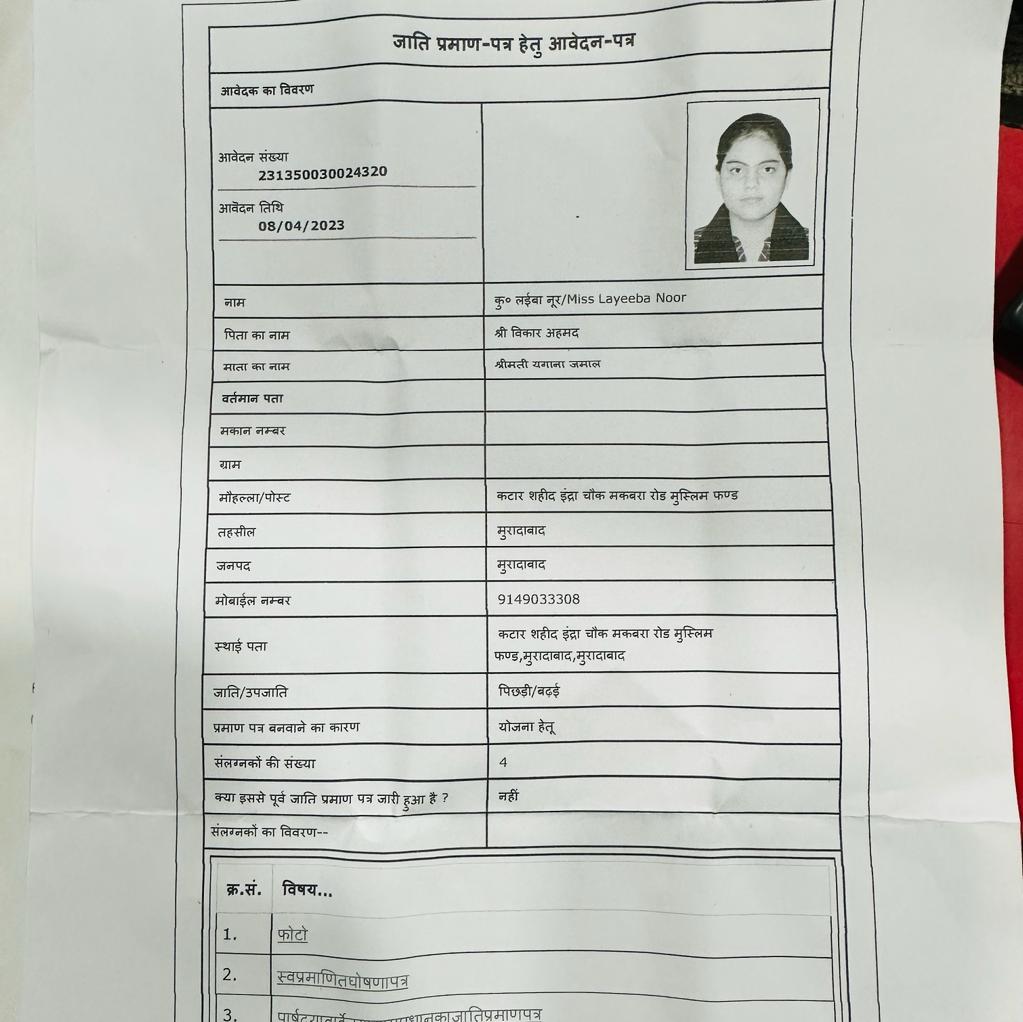 जाति प्रमाण-पत्र हेतु आवेदन-पत्र
आवेदक का विवरण
आवेदन संख्या
231350030024320
आवेदन तिथि
08/04/2023
नाम कु० लईबा नूर/Miss Layeeba Noor
पिता का नाम श्री विकार अहमद
माता का नाम श्रीमती यगाना जमाल
वर्तमान पता
मकान नम्बर
ग्राम
मौहल्ला/पोस्ट कटार शहीद इंद्रा चौक मकबरा रोड मुस्लिम फण्ड
तहसील मुरादाबाद
जनपद मुरादाबाद
मोबाईल नम्बर 9149033308
स्थाई पता कटार शहीद इंद्रा चौक मकबरा रोड मुस्लिम
फण्ड,मुरादाबाद,मुरादाबाद
जाति/उपजाति पिछड़ी/बढ़ई
प्रमाण पत्र बनवाने का कारण योजना हेतू
संलग्नकों की संख्या 4
क्या इससे पूर्व जाति प्रमाण पत्र जारी हुआ है ? नहीं
संलग्नकों का विवरण--
क्र.सं. विषय...
1. फोटो
2. स्वप्रमाणितघोषणापत्र
3.